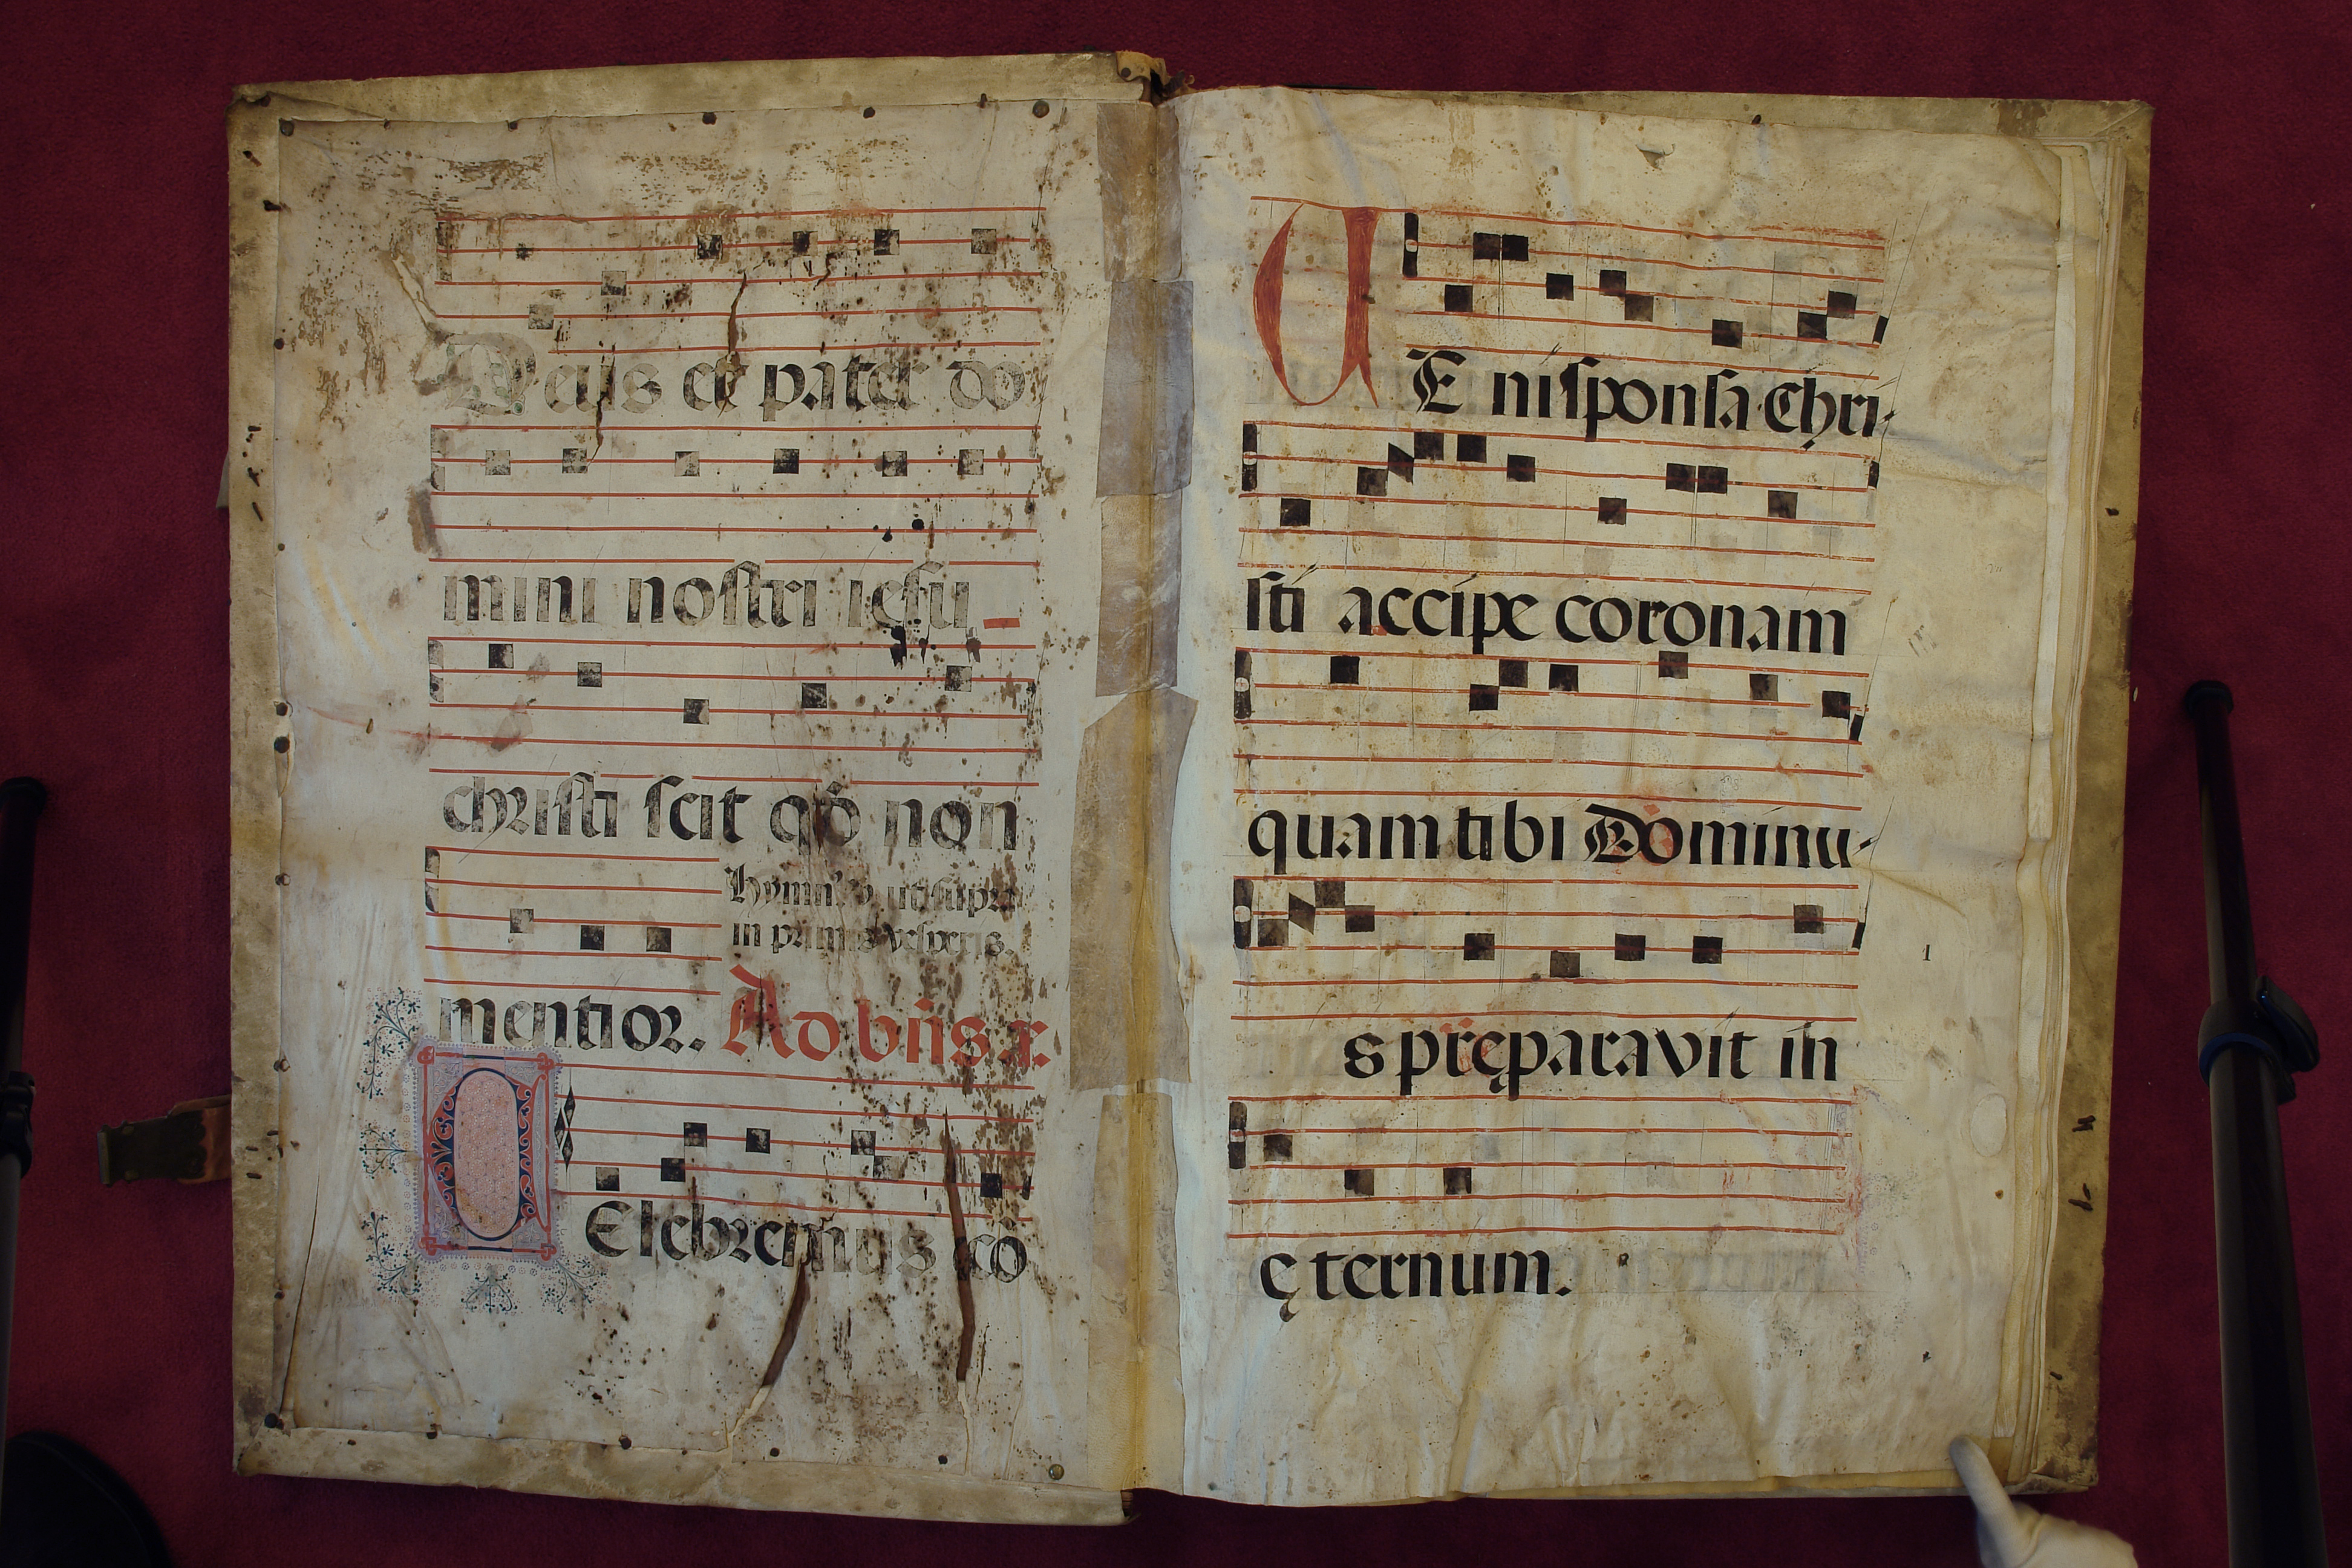 Deus et pater do
mini nostri iesu
christi scit qđ non
Hymn' ut supra
in primis vesperis.
mentior. Ad bñs r.
Elebremus cō
V E ni sponsa Chri-
sti accipe coronam
quam tibi Dominu-
s pręparavit in
1
ęternum.